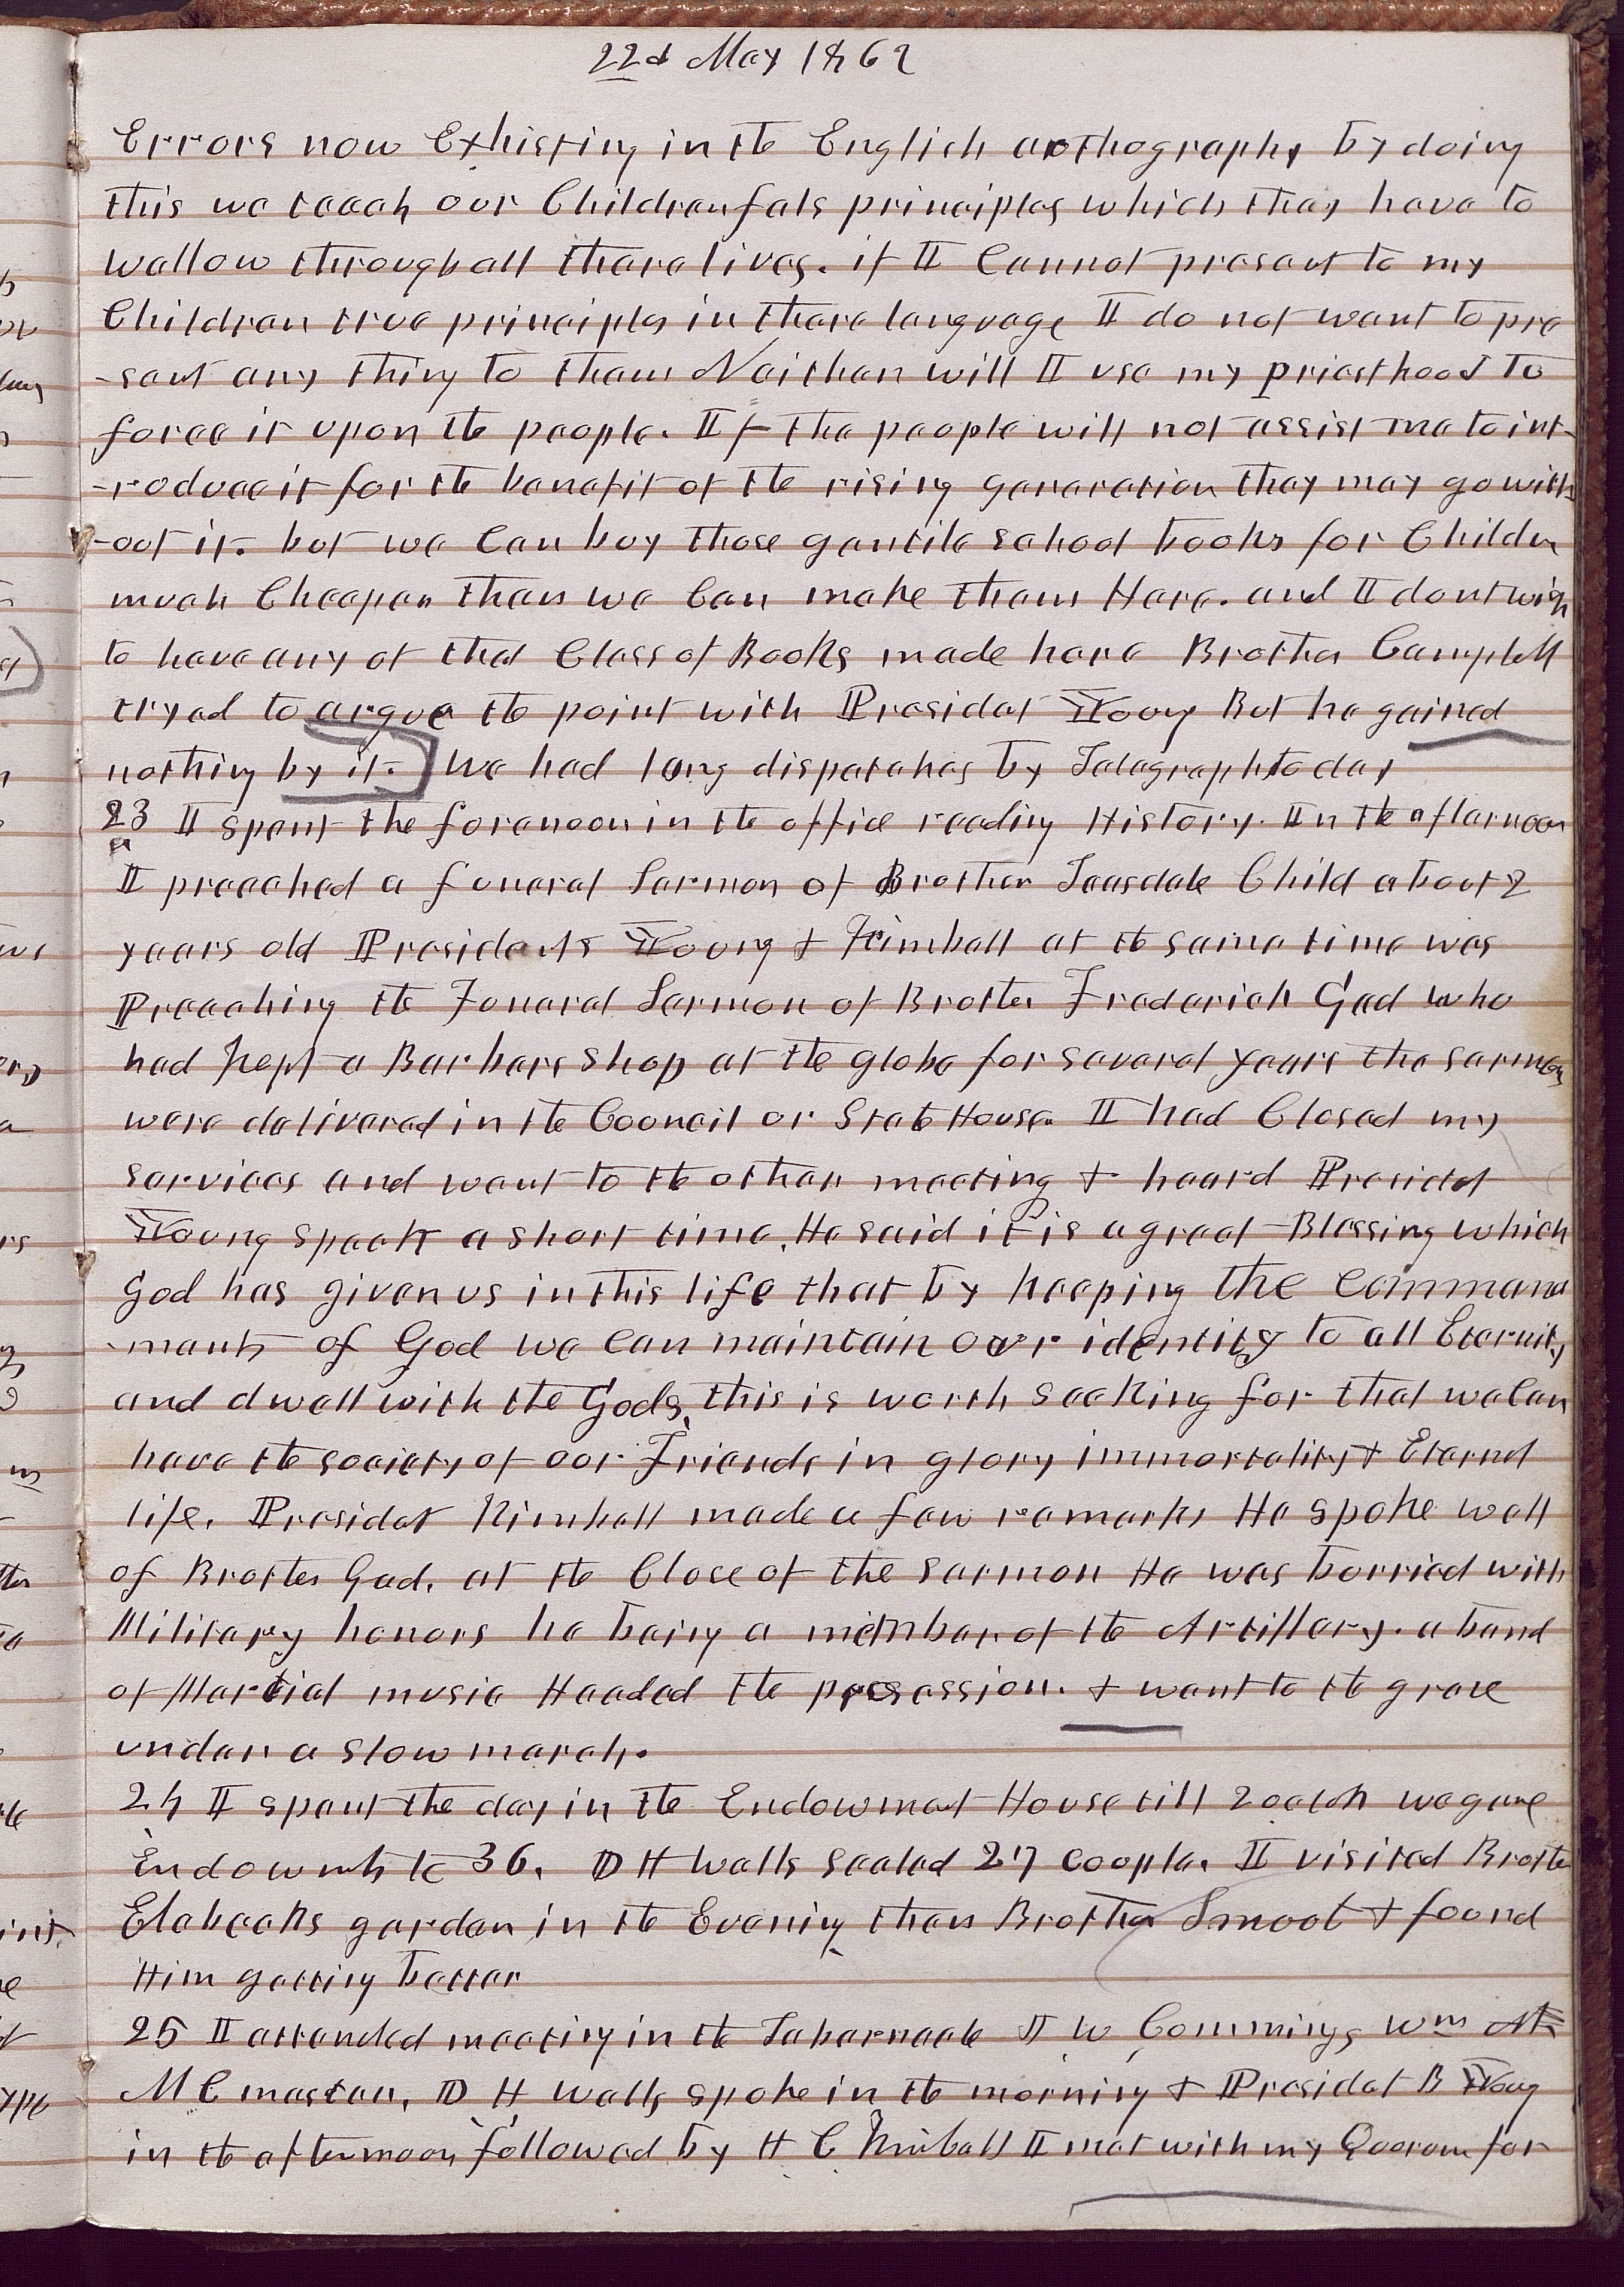 22d May 1862
Errors now Exhisting in the English orthography by doing
this we teach our Children fals principles which they have to
wallow through all there lives. if I Cannot present to my
Children true principles in there language I do not want to pre
-sent any thing to them Neithen will I use my priesthood to
force it upon the people. If the people will not assist me to int-
-roduce it for the benefit of the rising generation they may go with
-out it. but we Can buy those gentile school books for Childen
much Cheapen than we Can make them Here. and I dont wish
to have any of that Class of Books made here Brother Campbell
tryed to argue the point with Presidet Young But he gained
nothing by it. We had long dispatches by Telegraph to day
23 I spent the forenoon in the office reading History. In the afternoon
I preached a funeral Sermon of Brother Teasdale Child about 2
years old Presidents Young & Kimball at the same time was
Preaching the Funeral Sermon of Brother Frederick Gad who
had kept a Barbers Shop at the globe for several years the sermon
were delivered in the Council or State House. I had Closed my
services and went to the other meeting & heard Presidet
Young speak a short time. He said it is a great Blessing which
God has given us in this life that by keeping the Command
-ments of God we Can maintain our identity to all Eternity
and dwell with the Gods, this is worth seeking for that we Can
have the society of our Friends in glory immortality & Eternal
life. Presidet Kimball made a few remarks He spoke well
of Brother Gad. at the Close of the sermon He was burried with
Military honors he being a member of the Artillery. a band
of Martial music Headed the prosession. & went to the grave
under a slow march.
24 I spent the day in the Endowment House till 2 oclok we gave
Endowmts to 36. D H Wells sealed 27 couple. I visited Brother
Elebecks garden in the Evening then Brother Smoot & found
Him getting better
25 I attended meeting in the Tabernacle J W Cummings Wm
MC master, D H Wells spoke in the morning & Presidet B Young
in the afternoon followed by H C Kimball I met with my Quorum for